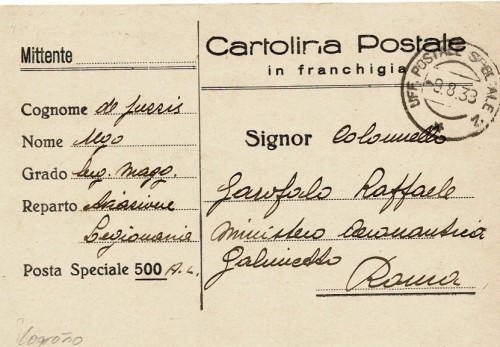 Mittente
Cognome de
Nome Ugo
Grado Serg. Magg.
Reparto Aviazione
Legionaria
Posta Speciale 500 A.L.
Cartolina Postale
in franchigia
UFF. POSTALE SPECIALE
9.8.38
1
Signor Colonnello
Garofalo Raffaele
Ministero Aeronautica
Gabinetto
Roma
Logroño